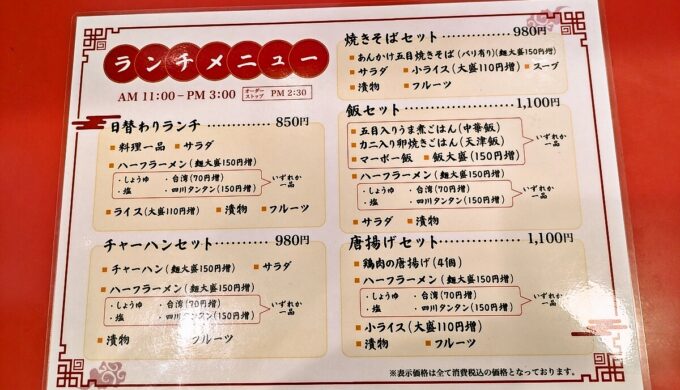 ランチメニュー
AM 11:00－PM 3:00 オーダーストップ PM 2:30
日替わりランチ………… 850円
■料理一品 ■サラダ
■ハーフラーメン(麺大盛150円増)
・しょうゆ ・台湾(70円増)
・塩 ・四川タンタン(150円増)
いずれか一品
■ライス(大盛110円増) ■漬物 ■フルーツ
チャーハンセット………… 980円
■チャーハン(麺大盛150円増) ■サラダ
■ハーフラーメン(麺大盛150円増)
・しょうゆ ・台湾(70円増)
・塩 ・四川タンタン(150円増)
いずれか一品
■漬物 ■フルーツ
焼きそばセット………… 980円
■あんかけ五目焼きそば(バリ有り)(麺大盛150円増)
■サラダ ■小ライス(大盛110円増) ■スープ
■漬物 ■フルーツ
飯セット………… 1,100円
■五目入りうま煮ごはん(中華飯)
■カニ入り卵焼きごはん(天津飯)
■マーボー飯 ■飯大盛(150円増)
いずれか一品
■ハーフラーメン(麺大盛150円増)
・しょうゆ ・台湾(70円増)
・塩 ・四川タンタン(150円増)
いずれか一品
■サラダ ■漬物
唐揚げセット………… 1,100円
■鶏肉の唐揚げ(4個)
■ハーフラーメン(麺大盛150円増)
・しょうゆ ・台湾(70円増)
・塩 ・四川タンタン(150円増)
いずれか一品
■小ライス(大盛110円増)
■漬物 ■フルーツ
※表示価格は全て消費税込の価格となっております。